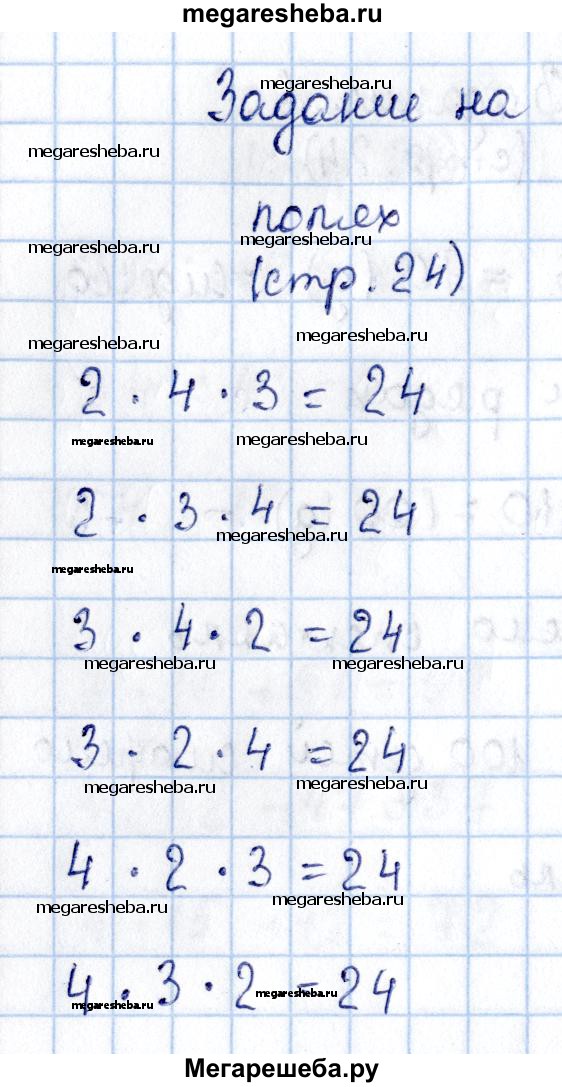 megaresheba.ru
megaresheba.ru
Задание на
megaresheba.ru
полях
megaresheba.ru
megaresheba.ru
(стр. 24)
megaresheba.ru
megaresheba.ru
2 · 4 · 3 = 24
megaresheba.ru
megaresheba.ru
2 · 3 · 4 = 24
megaresheba.ru
megaresheba.ru
3 · 4 · 2 = 24
megaresheba.ru
megaresheba.ru
3 · 2 · 4 = 24
megaresheba.ru
megaresheba.ru
4 · 2 · 3 = 24
megaresheba.ru
megaresheba.ru
4 · 3 · 2 = 24
megaresheba.ru
megaresheba.ru
Мегарешеба.ру